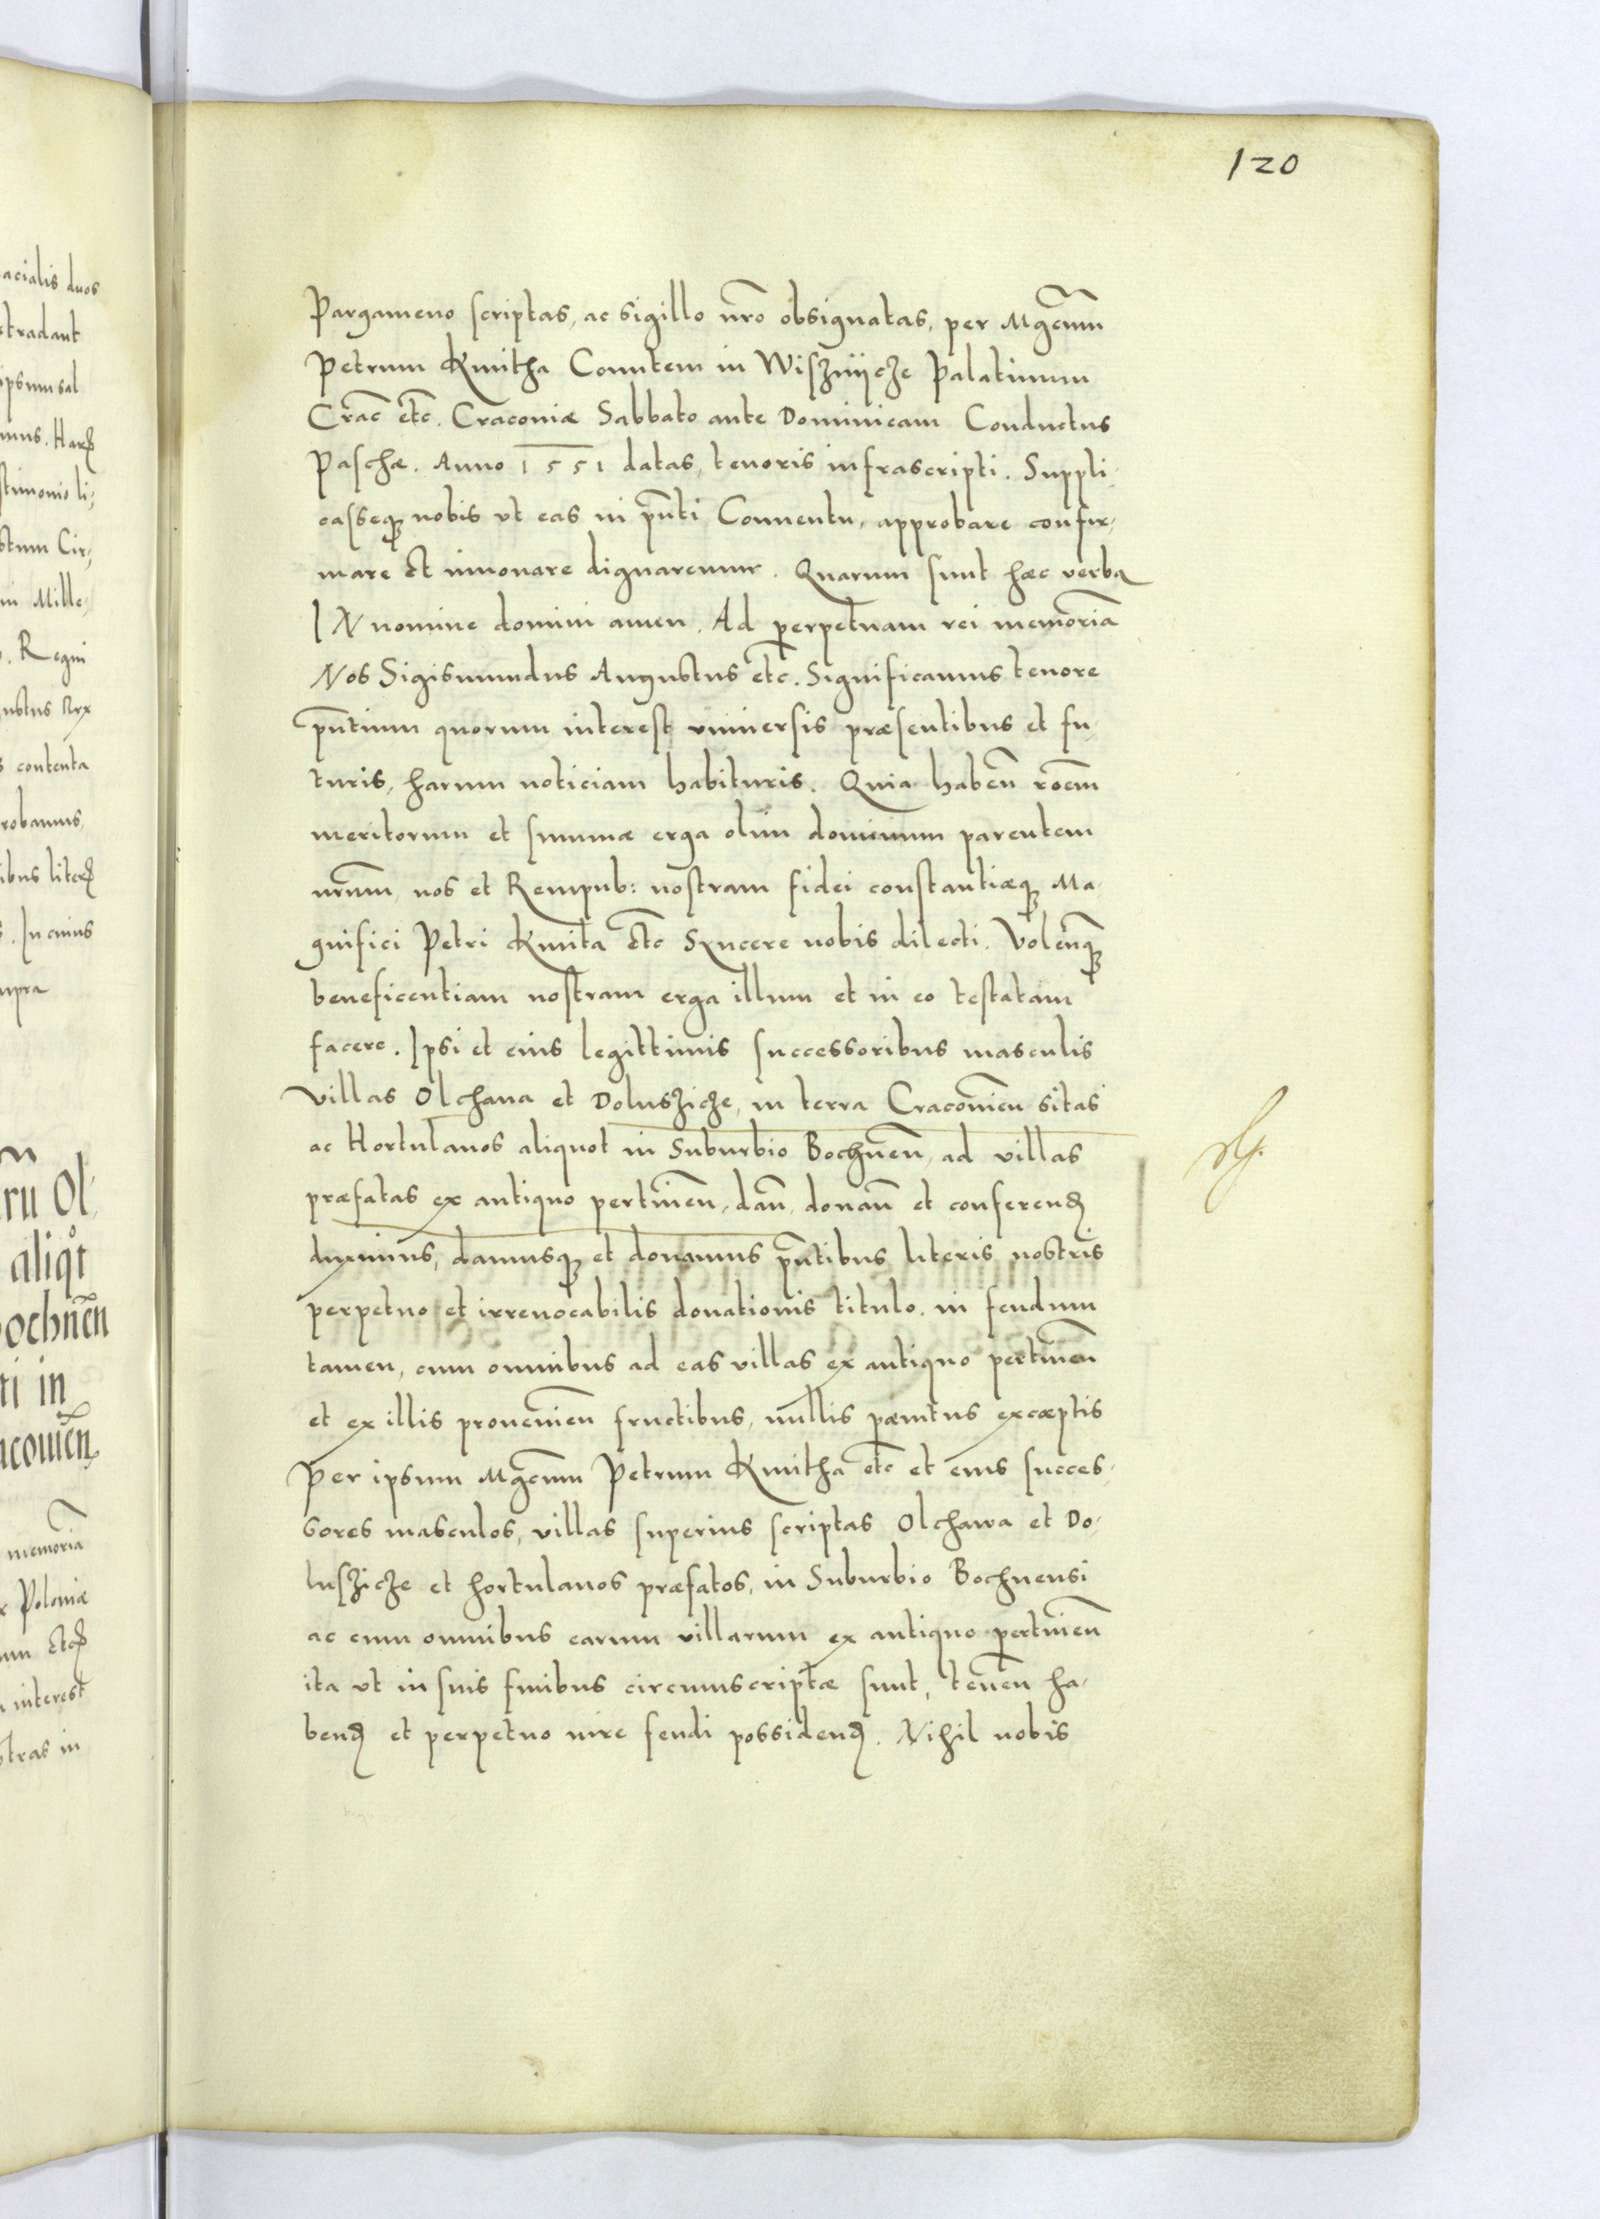 acialis duos
stradant
ipsum sal
mus. Harꝝ
stimonio li-
stum Cir-
in Mille-
. Regni
ustus Rex
s contenta
robamus,
ibus literꝝ
s. In cuius
supra
rũ Ol-
aliqt
ochnẽn
ti in
acoviẽn
memoriã
Poloniæ
interest
stras in
120
Pargameno scriptas, ac sigillo nrõ obsignatas, per Mgcũm
Petrum Kmitha Comitem in Wisznijcze Palatinum
Crac̃ etc̃. Cracoviæ Sabbato ante Dominicam Conductus
Paschæ. Anno 1551 datas, tenoris infrascripti. Suppli-
casseqꝫ nobis vt eas in pñti Conuentu, approbare confir-
mare et innouare dignaremur. Quarum sunt hæc verba
IN nomine domini amen. Ad perpetuam rei memoriã
Nos Sigismundus Augustus etc̃. Significamus tenore
pñtium quorum interest vniuersis præsentibus et fu-
turis, harum noticiam habituris. Quia habeñ rõem
meritorum et summæ erga olim dominum parentem
nrũm, nos et Rempub: nostram fidei constantiæqꝫ Ma-
gnifici Petri Kmita etc̃ Syncere nobis dilecti. Voleñqꝫ
beneficentiam nostram erga illum et in eo testatam
facere. Ipsi et eius legittimis successoribus masculis
villas Olchaua et Doluszicze, in terra Cracovieñ sitas
ac Hortulanos aliquot in Suburbio Bochneñ, ad villas
præfatas ex antiquo pertineñ, dañ, donañ et conferenꝺ
duximus, damusqꝫ et donamus pñtibus literis nostris
perpetuo et irreuocabilis donationis titulo. in feudum
tamen, cum omnibus ad eas villas ex antiquo pertineñ
et ex illis prouenieñ fructibus, nullis pænitus excæptis
Per ipsum Mgcũm Petrum Kmitha etc̃ et eius succes-
sores masculos, villas superius scriptas Olchawa et Do-
luszicze et hortulanos præfatos, in Suburbio Bochnensi
ac cum omnibus earum villarum ex antiquo pertineñ
ita vt in suis finibus circumscriptæ sunt, teneñ ha-
benꝺ et perpetuo iure feudi possidenꝺ. Nihil nobis